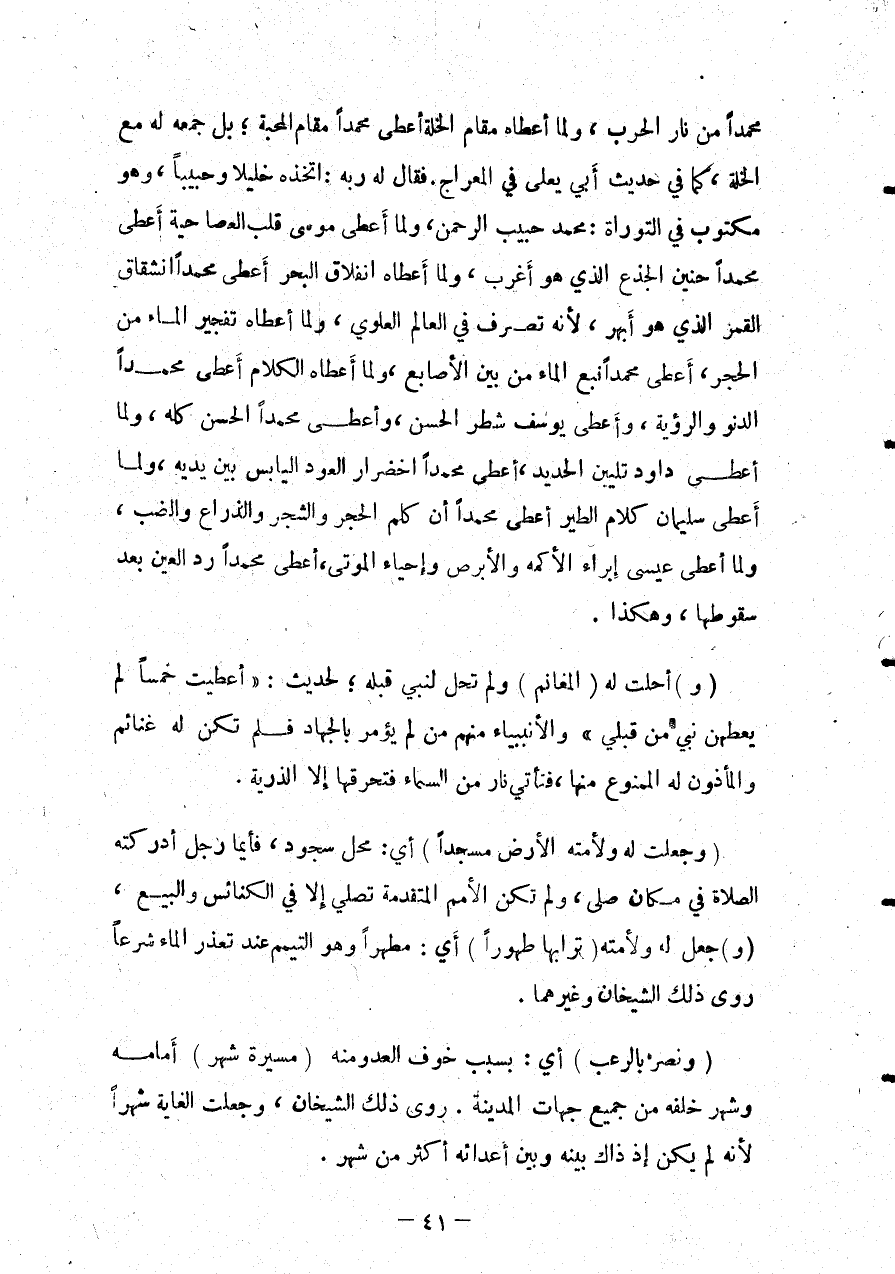 محمداً من نار الحرب ، ولما أعطاه مقام الخلة أعطى محمداً مقام المحبة ؛ بل جمعه له مع
الخلة ، كما في حديث أبي يعلى في المعراج . فقال له ربه : اتخذه خليلا وحبيباً ، وهو
مكتوب في التوراة : محمد حبيب الرحمن ، ولما أعطى موسى قلب العصا حية أعطى
محمداً حنين الجذع الذي هو أغرب ، ولما أعطاه انفلاق البحر أعطى محمداً انشقاق
القمر الذي هو أبهر ، لأنه تصرف في العالم العلوي ، ولما أعطاه تفجير المـاء من
الحجر ، أعطى محمداً نبع الماء من بين الأصابع ، ولما أعطاه الكلام أعطى محمــداً
الدنو والرؤية ، وأعطى يوسف شطر الحسن ، وأعطــى محمداً الحسن كله ، ولما
أعطــى داود تليين الحديد ، أعطى محمداً اخضرار العود اليابس بين يديه ، ولمـا
أعطى سليمان كلام الطير أعطى محمداً أن كلم الحجر والشجر والذراع والضب ،
ولما أعطى عيسى إبراء الأكمه والأبرص وإحياء الموتى ، أعطى محمداً رد العين بعد
سقوطها ، وهكذا .
( و ) أحلت له ( المغانم ) ولم تحل لنبي قبله ؛ لحديث : « أعطيت خمساً لم
يعطهن نبي من قبلي » والأنبياء منهم من لم يؤمر بالجهاد فــلم تكن له غنائم
والمأذون له الممنوع منها ، فتأتي نار من السماء فتحرقها إلا الذرية .
( وجعلت له ولأمته الأرض مسجداً ) أي : محل سجود ، فأيما رجل أدركته
الصلاة في مـكان صلى ، ولم تكن الأمم المتقدمة تصلي إلا في الكنائس والبيـع ،
( و ) جعل له ولأمته ( ترابها طهوراً ) أي : مطهراً وهو التيمم عند تعذر الماء شرعاً
روى ذلك الشيخان وغيرهما .
( ونصر بالرعب ) أي : بسبب خوف العدو منه ( مسيرة شهر ) أمامــه
وشهر خلفه من جميع جهات المدينة . روى ذلك الشيخان ، وجعلت الغاية شهراً
لأنه لم يكن إذ ذاك بينه وبين أعدائه أكثر من شهر .
– ٤١ –